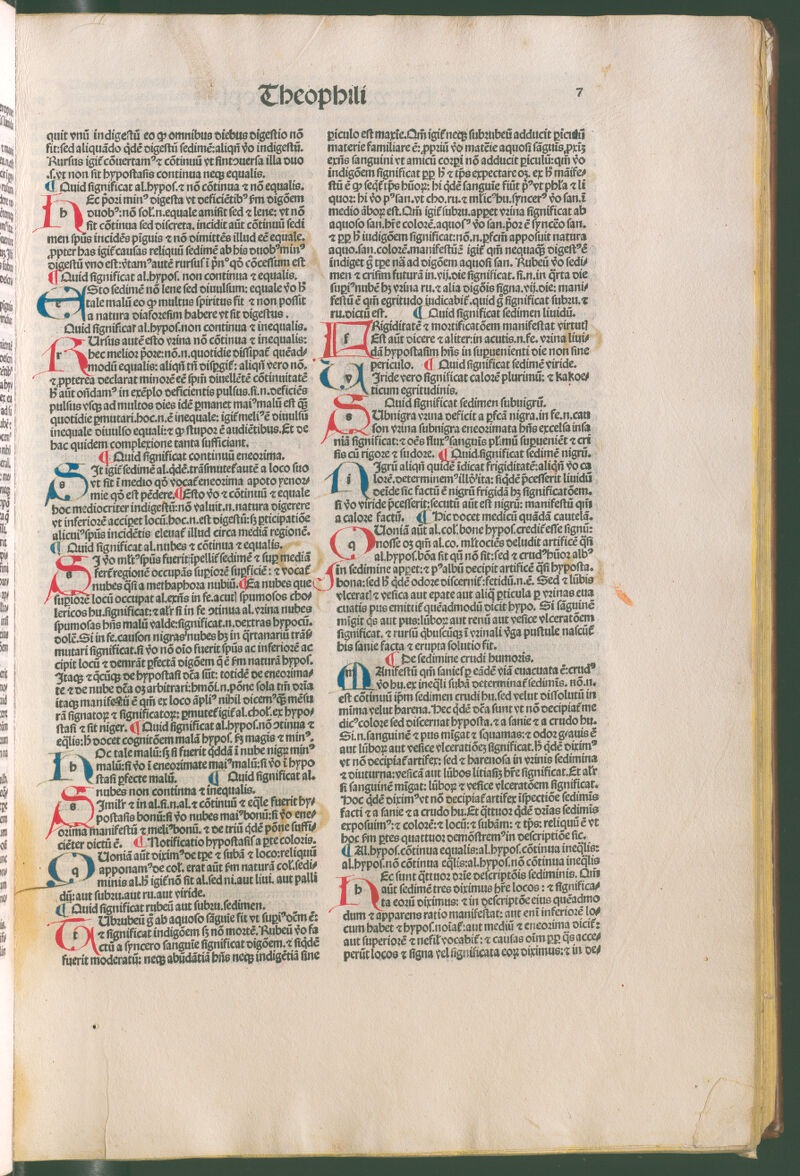 Theophili
7
quit vnū indigestū eo ꝙ omnibus diebus digestio nō
fit: sed aliquādo qdē digestū sedimē: aliqñ v̉o indigestū.
Rursus igit̉ cōuertam᷒ ⁊ cōtinuū vt sint illa duo
.s. vt non sit hypostasis continua neqꝫ equalis.
¶ Quid significat al.hypos. ⁊ nō cōtinua ⁊ nō equalis.
h Ec p̄ori min᷒ digesta vt deficiētib᷒ ẜm digōem
duob᷒: nō sol̉.n.equale amisit sed ⁊ lene: vt nō
sit cōtinua sed discreta. incidit aūt cōtinuū sedi
men sp̄us incidēs pīguis ⁊ nō dimittēs illud eē equale.
ꝓpter has igit̉ causas reliquū sedimē ab his duob᷒ min᷒
digestū vno est:
¶ Quid significat al.hypos. non continua ⁊ equalis.
e Sto sedimē nō lene sed diuulsum: equale v̉o ꝫ
tale malū eo ꝙ multus spiritus fit ⁊ non possit
a natura diaforesim habere vt sit digestus.
Quid significat al.hypos. non continua ⁊ inequalis.
r Ursus autē esto vrina nō continua ⁊ inequalis:
hec melior p̄ore: nō.n.quotidie dissipat̉ quēad᷒
modū equalis: aliqñ tñ disp̄git̉: aliqñ vero nō.
⁊ ꝓpterea declarat minorē eē sp̄m diuellētē cōtinuitatē
aūt oñdam᷒ in exēplo deficientis pulsus. si.n.deficiēs
pulsus vsqꝫ ad multos dies idē ꝑmanet mai᷒ malū est
quotidie ꝑmutari. hoc.n.ē inequale: igit̉ meli᷒ ē diuulsū
inequale diuulso equali: ⁊ ꝙ stupor ē audiētibus. Et de
hac quidem complexione tanta sufficiant.
¶ Quid significat continuū eneorima.
s It igit̉ sedimē al.qdē. trāsmutet̉ autē a loco suo
vt sit ī medio qō vocat̉ eneorima apoto yenor᷒
mie qō est pēdere. ¶ Esto v̉o ⁊ cōtinuū ⁊ equale
hoc mediocriter indigestū: nō valuit.n.natura digerere
vt inferiorē accipet locū. hoc.n.est digestū: ꝑticipatiōe
alicui᷒ sp̄us incidētis eleuat̉ illud circa mediā regionē.
¶ Quid significat al.nubes ⁊ cōtinua ⁊ equalis.
s I v̉o mlt᷒ sp̄us fuerit: ipellit̉ sedimē ⁊ sup mediā
fert̉ regionē occupās supiorē supficiē: ⁊ vocat̉
nubes qsi a metaphora nubiū. ¶ Ea nubes que
supiorē locū occupat al.exñs in fe.acu. spumosos cho
lericos hu.significat: ⁊ alr̄ si in fe cōtinua al.vrina nubes
spumosas hñs malū valde: significat.n.dextras hypocū.
dolē. Si in fe.causon nigras nubes hꝫ in qrtanariū trās
mutari significat. si v̉o nō oīo fuerit sp̄us ac inferiorē ac
cipit locū ⁊ demrāt ꝑfectā digōem q̄ ē ẜm naturā hypos.
Itaqꝫ ⁊ de hypostasi dc̄a sūt: totidē de eneorima᷒
te ⁊ de nube dc̄a arbitrari:
itaqꝫ manifestū ē qm̄ ex loco nihil dicem᷒
rā signator̉ ⁊ significator̉: ꝑmutet̉ igit̉ al.chol̉. ex hypo᷒
stasi ⁊ sit niger. ¶ Quid significat al.hypos. nō ⁊
eqlis: docet cognitōem malā hypos. magis ⁊ min᷒.
h Oc tale malū: si fuerit qddā ī nube nigr̉ min᷒
malū: si v̉o ī eneorimate mai᷒ malū: si v̉o ī hypo
stasi ꝑfecte malū. ¶ Quid significat al.
nubes non continua ⁊ inequalis.
s Imilr̄ ⁊ in al.si.n.al.⁊ cōtinuū ⁊ eqle fuerit hy᷒
postasis bonū: si v̉o nubes mai᷒ bonū: si v̉o ene᷒
orima manifestū ⁊ meli᷒ bonū. ⁊ de triū qdē pōne suffi᷒
ciēter dictū ē. ¶ Notificatio hypostasis a pte coloris.
q Uoniā aūt dixim᷒ de tp̄e ⁊ subā ⁊ loco: reliquū
apponam᷒ de col̉. erat aūt ẜm naturā col̉.sedi᷒
minis al. igit̉ nō sit al.sed ni.aut liui. aut palli
dū: aut subru.aut ru.aut viride.
¶ Quid significat rubeū aut subru.sedimen.
t Ubrubeū g̉ ab aquoso sāguie fit vt supi᷒ dcm̄ ē:
⁊ significat indigōem nō mortē. Rubeū v̉o fa
ctū a syncero sanguie significat digōem. ⁊ siqdē
fuerit moderatū: neqꝫ abūdātiā hñs neqꝫ indigētiā sine
ꝑiculo est maxie. Qm̄ igit̉ neqꝫ subrubeū adducit ꝑiculū
materie familiare ē: ꝓpriū v̉o mat̉ie aquosi sāgnis
exñs sanguini vt amicū corpi nō adducit ꝑiculū: qm̄ v̉o
indigōem significat ⁊ tp̄s expectare oꝫ. ex mātfe᷒
stū ē ꝙ seqt̉ ip̄s hūor: hi qdē sanguie fiūt p᷒ vt phl̄a ⁊ li
quor: hi v̉o p᷒ san.vt cho.ru.⁊ ml̄ic hu.syncer᷒ v̉o san.ī
medio ābor̉ est. Qm̄ igit̉ subru.appet vrina significat ab
aquoso san.hr̄e colorē. aquos᷒ v̉o san.p̄or ē syncēo san.
⁊ indigōem significat: nō.n.ꝑfcm̄ apposuit natura
aquo.san.colorē. manifestū ē igit̉ qm̄ nequaqꝫ digest᷒ ē
indiget g̉ tp̄e nā ad digōem aquosi san. Rubeū v̉o sedi᷒
men ⁊ crisim futurā in.vij.die significat. si.n.in qrta die
supi᷒ nube hꝫ vrina ru.⁊ alia digōis signa.vij.die: mani᷒
festū ē qm̄ egritudo iudicabit̉. quid g̉ significat subru.⁊
ru.dictū est. ¶ Quid significat sedimen liuidū.
f Rigiditatē ⁊ mortificatōem manifestat virtut̉
Est aūt vicere ⁊ aliter: in acutis.n.fe.vrina liui᷒
dā hypostasim hñs in supuenienti die non sine
periculo. ¶ Quid significat sedimē viride.
v Iride vero significat calorē plurimū: ⁊ kakoe᷒
ticum egritudinis.
Quid significat sedimen subnigrū.
s Ubnigra vrina deficit a ꝑfcā nigra. in fe.n.cau
son vrina subnigra eneorimata hñs excelsa insa
niā significat: ⁊ oēs flux᷒ sanguis pl̄mū supueniēt ⁊ cri
sis cū rigore ⁊ sudore. ¶ Quid significat sedimē nigrū.
n Igrū aliqñ quidē īdicat frigiditatē: aliqñ v̉o ca
lorē. determinem᷒ ill᷒ v̉ita: siqdē p̄cesserit liuidū
deīde sic factū ē nigrū frigidā hꝫ significatōem.
si v̉o viride p̄cesserit: secutū aūt est nigrū: manifestū qm̄
a calore factū. ¶ Hic docet medicū quādā cautelā.
q Uoniā aūt al.col.bone hypos.credit̉ esse signū:
nosse oꝫ qm̄ al.co.ml̄tociēs deludit artificē qsi
al.hypos.bōa sit qn̄ nō sit: sed ⁊ crud᷒ hūor alb᷒
in sedimine appet: ⁊ p᷒ albū decipit artificē qsi hyposta.
bona: sed odore discernit̉: fetidū.n.ē. Sed ⁊ lūbis
vlcerat̉ ⁊ vesica aut epate aut aliq ꝑticula ꝑ vrinas eua
cuatis pus emittit̉ quēadmodū dicit hypo. Si sāguinē
migit qs aut pus: lūbor̉ aut renū aut vesice vlceratōem
significat. ⁊ rursū qbuscūqꝫ ī vrinali v̉ga pustule nascūt̉
his sanie facta ⁊ erupta solutio fit.
¶ De sedimine crudi humoris.
m Anifestū qm̄ sanies ꝑ eādē viā euacuata ē: crud᷒
v̉o hu. ex ineqli subā determinat̉ sedimīs. nō.n.
est cōtinuū ipm̄ sedimen crudi hu.sed velut dissolutū in
mīma velut harena. Hec qdē dc̄a sunt vt nō decipiat̉ me
dic᷒ colore sed discernat hyposta.⁊ a sanie ⁊ a crudo hu.
Si.n.sanguinē ⁊ pus mīgat ⁊ squamas: ⁊ odor g̉uis ē
aut lūbor̉ aut vesice vlceratiōeꝫ significat. qdē dixim᷒
vt nō decipiat̉ artifex: sed ⁊ harenosa in vrinis sedimina
⁊ diuturna: vesicā aut lūbos litiasiꝫ hr̄e significat. Et alr̄
si sanguinē mīgat: lūbor̉ ⁊ vesice vlceratōem significat.
Hoc qdē dixim᷒ vt nō decipiat̉ artifex īspectiōe sedimīs
facti ⁊ a sanie ⁊ a crudo hu. Et qttuor qdē dr̄ias sedimīs
exposuim᷒: ⁊ colorē: ⁊ locū: ⁊ subām: ⁊ tp̄s: reliquū ē vt
hoc ẜm ptes quattuor demōstrem᷒ in descriptiōe sic.
¶ Al.hypos.cōtinua equalis: al.hypos.cōtinua ineqlis:
al.hypos.nō cōtinua eqlis: al.hypos.nō cōtinua ineqlis
h Ec sunt qttuor dr̄ie descriptōis sediminis. Qm̄
aūt sedimē tres diximus hr̄e locos: ⁊ significa᷒
ta eorū diximus: ⁊ in descriptōe eius quēadmo
dum ⁊ apparens ratio manifestat: aut eni inferiorē lo᷒
cum habet ⁊ hypos.noīat̉: aut mediū ⁊ eneorima dicit̉:
aut superiorē ⁊ nefil̉ vocabit̉: ⁊ causas oīm qs acce᷒
perūt locos ⁊ signa vel significata eor̉ diximus: ⁊ in de᷒